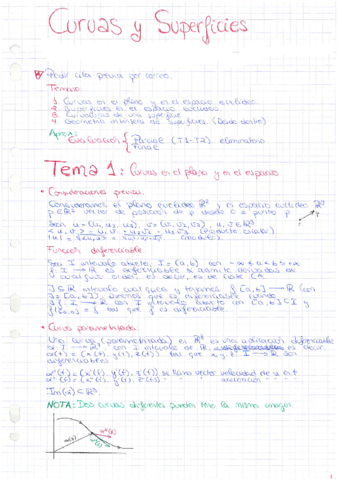 Curvas y Superficies
Pedir cita previa por correo.
Temario:
1. Curvas en el plano y en el espacio euclídeo
2. Superficies en el espacio euclídeo
3. de una superficie
4. Geometría intrínseca de superficies (Desde dentro)
Aprox:
Evaluación { Parcial (T1-T2) eliminatorio
Final
Tema 1: Curvas en el plano y en el espacio
• Consideraciones previas:
Consideramos el plano euclídeo ℝ² y el espacio euclídeo ℝ³
p ∈ ℝ³ vector de posición de p desde 0 = punto p
Son u = (u₁, u₂, u₃), v = (v₁, v₂, v₃), u, v ∈ ℝ³
(Producto escalar)
(módulo)
Función diferenciable
Sea I intervalo abierto, I = (a, b) con -∞ ≤ a < b ≤ +∞
f: I → ℝ es diferenciable si admite derivadas de
cualquier orden, es decir, es de clase
J ⊆ ℝ intervalo cualquiera y tenemos f: [a, b] → ℝ (con
J = [a, b]), diremos que es diferenciable cuando
∃ I → ℝ con I intervalo abierto con [a, b] ⊆ I y
= f tal que es diferenciable
• Curva parametrizada:
Una curva (parametrizada) en ℝ³ es una aplicación diferenciable
α: I → ℝ³ con I intervalo de ℝ, es decir
α(t) = (x(t), y(t), z(t)) tal que x, y, z: I → ℝ son
diferenciables
α'(t) = (x'(t), y'(t), z'(t)) se llama vector velocidad de α en t
α''(t) = (x''(t), y''(t), z''(t)) " " aceleración " " "
Im(α) ⊆ ℝ³
NOTA: Dos curvas diferentes pueden tener la misma imagen
α(t)
α'(t)
α''(t)
1